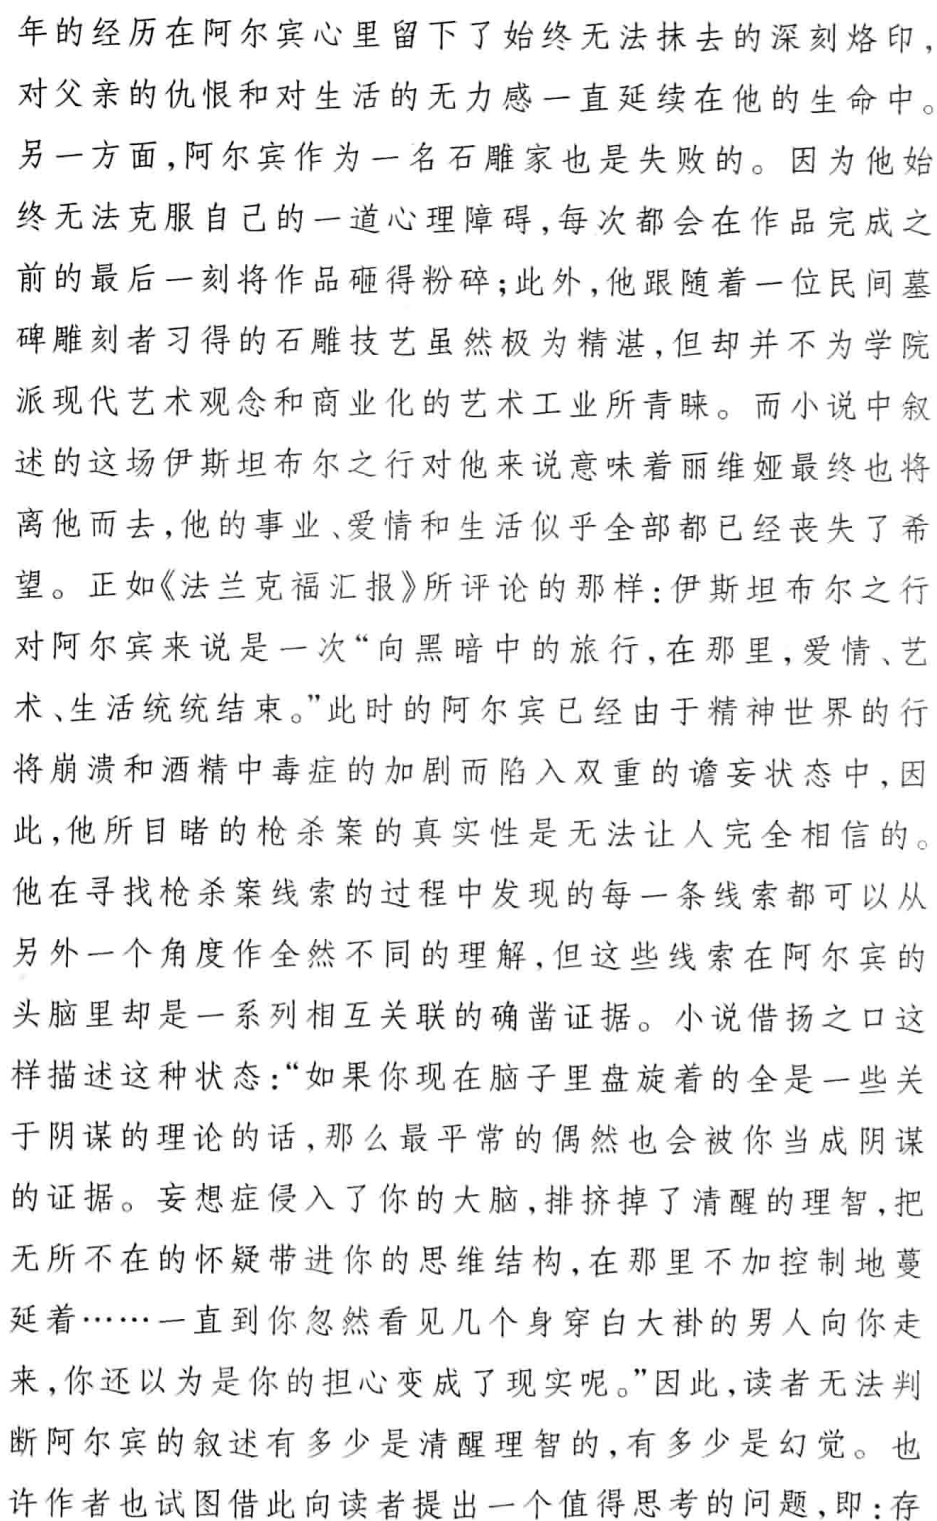 年的经历在阿尔宾心里留下了始终无法抹去的深刻烙印,
对父亲的仇恨和对生活的无力感一直延续在他的生命中。
另一方面,阿尔宾作为一名石雕家也是失败的。因为他始
终无法克服自己的一道心理障碍,每次都会在作品完成之
前的最后一刻将作品砸得粉碎;此外,他跟随着一位民间墓
碑雕刻者习得的石雕技艺虽然极为精湛,但却并不为学院
派现代艺术观念和商业化的艺术工业所青睐。而小说中叙
述的这场伊斯坦布尔之行对他来说意味着丽维娅最终也将
离他而去,他的事业、爱情和生活似乎全部都已经丧失了希
望。正如《法兰克福汇报》所评论的那样:伊斯坦布尔之行
对阿尔宾来说是一次“向黑暗中的旅行,在那里,爱情、艺
术、生活统统结束。”此时的阿尔宾已经由于精神世界的行
将崩溃和酒精中毒症的加剧而陷入双重的谵妄状态中,因
此,他所目睹的枪杀案的真实性是无法让人完全相信的。
他在寻找枪杀案线索的过程中发现的每一条线索都可以从
另外一个角度作全然不同的理解,但这些线索在阿尔宾的
头脑里却是一系列相互关联的确凿证据。小说借扬之口这
样描述这种状态:“如果你现在脑子里盘旋着的全是一些关
于阴谋的理论的话,那么最平常的偶然也会被你当成阴谋
的证据。妄想症侵入了你的大脑,排挤掉了清醒的理智,把
无所不在的怀疑带进你的思维结构,在那里不加控制地蔓
延着……一直到你忽然看见几个身穿白大褂的男人向你走
来,你还以为是你的担心变成了现实呢。”因此,读者无法判
断阿尔宾的叙述有多少是清醒理智的,有多少是幻觉。也
许作者也试图借此向读者提出一个值得思考的问题,即:存